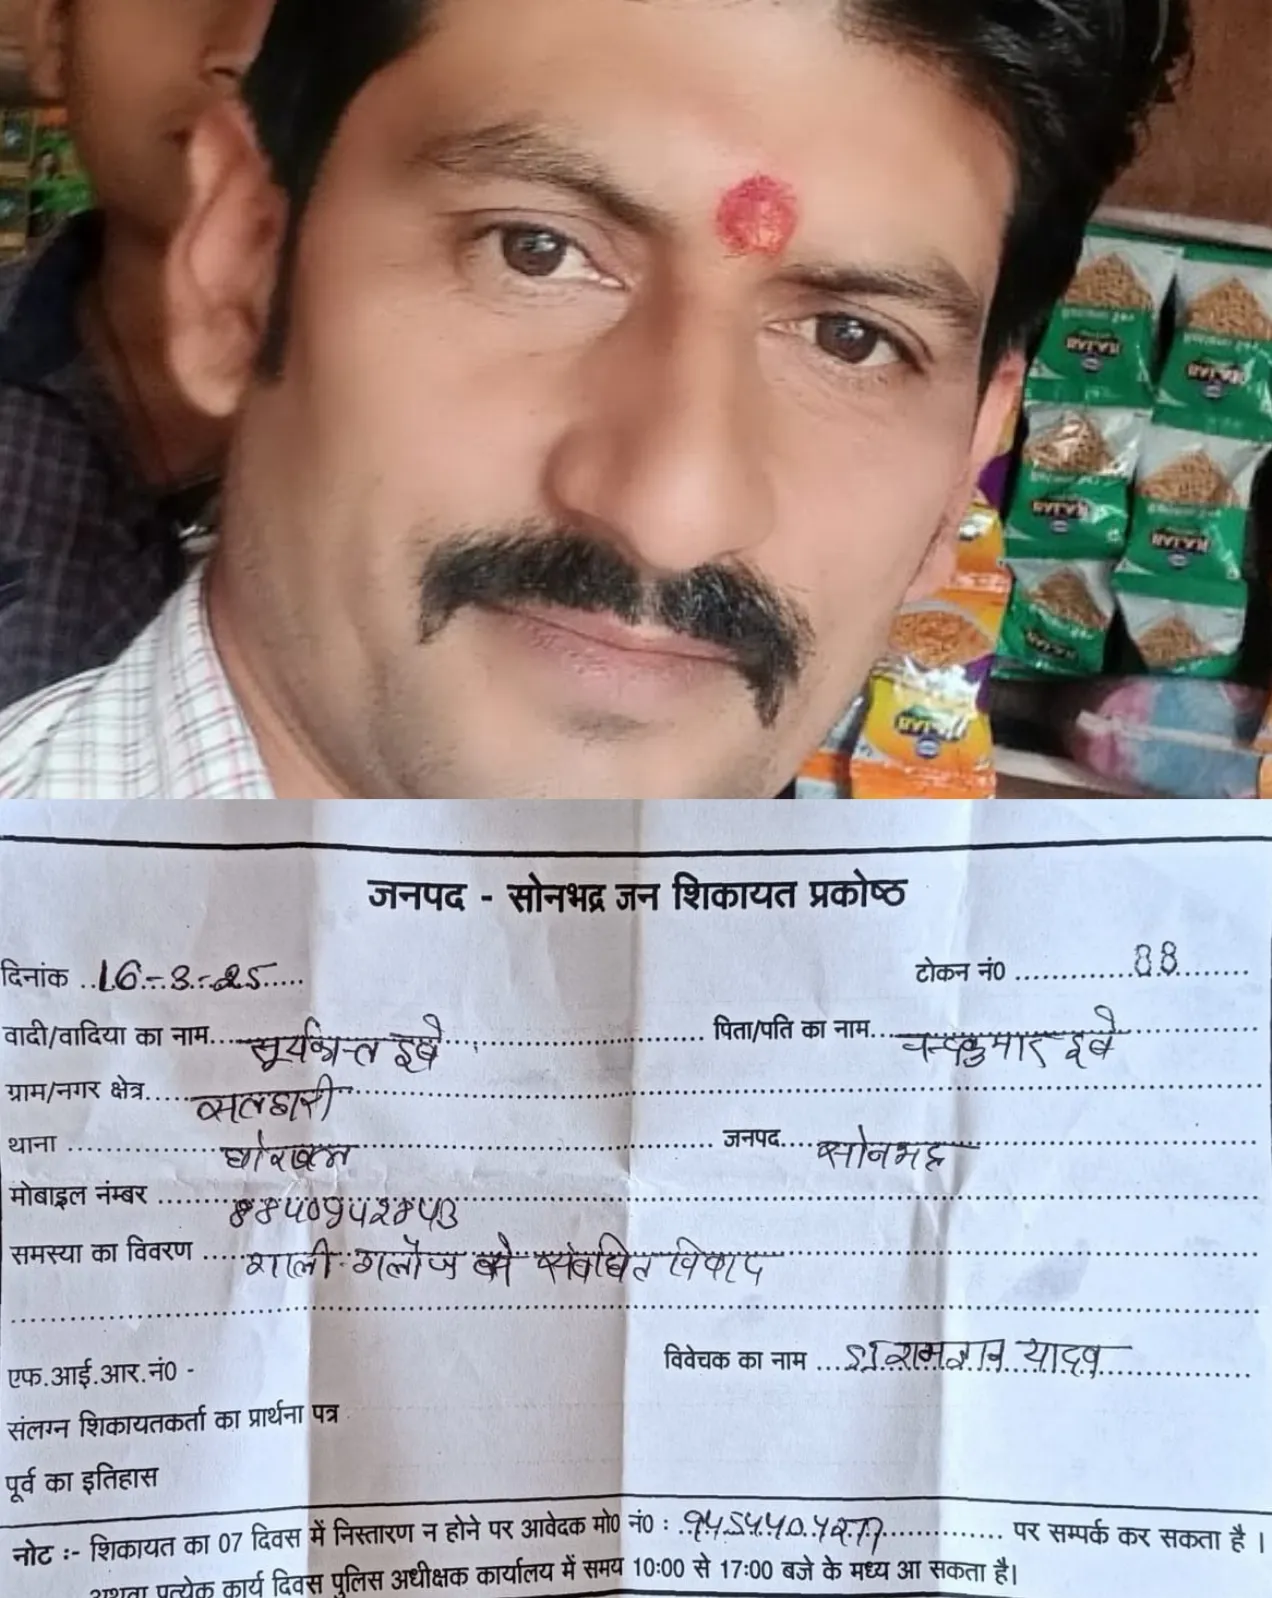 RAJAN
RAJAN
RAJAN
RAJAN
जनपद - सोनभद्र जन शिकायत प्रकोष्ठ
दिनांक ..16-3-25..... टोकन नं0 ..............88........
वादी/वादिया का नाम...सूर्यकान्त दुबे............ पिता/पति का नाम...दुबे
ग्राम/नगर क्षेत्र.....
थाना ........घोरावल........ जनपद....सोनभद्र
मोबाइल नंम्बर ........
समस्या का विवरण .....गाली गलौज से संबंधित विवाद
एफ.आई.आर.नं0 - विवेचक का नाम ... यादव
संलग्न शिकायतकर्ता का प्रार्थना पत्र
पूर्व का इतिहास
नोट :- शिकायत का 07 दिवस में निस्तारण न होने पर आवेदक मो0 नं0 : .9454404277............. पर सम्पर्क कर सकता है ।
अथवा प्रत्येक कार्य दिवस पुलिस अधीक्षक कार्यालय में समय 10:00 से 17:00 बजे के मध्य आ सकता है।